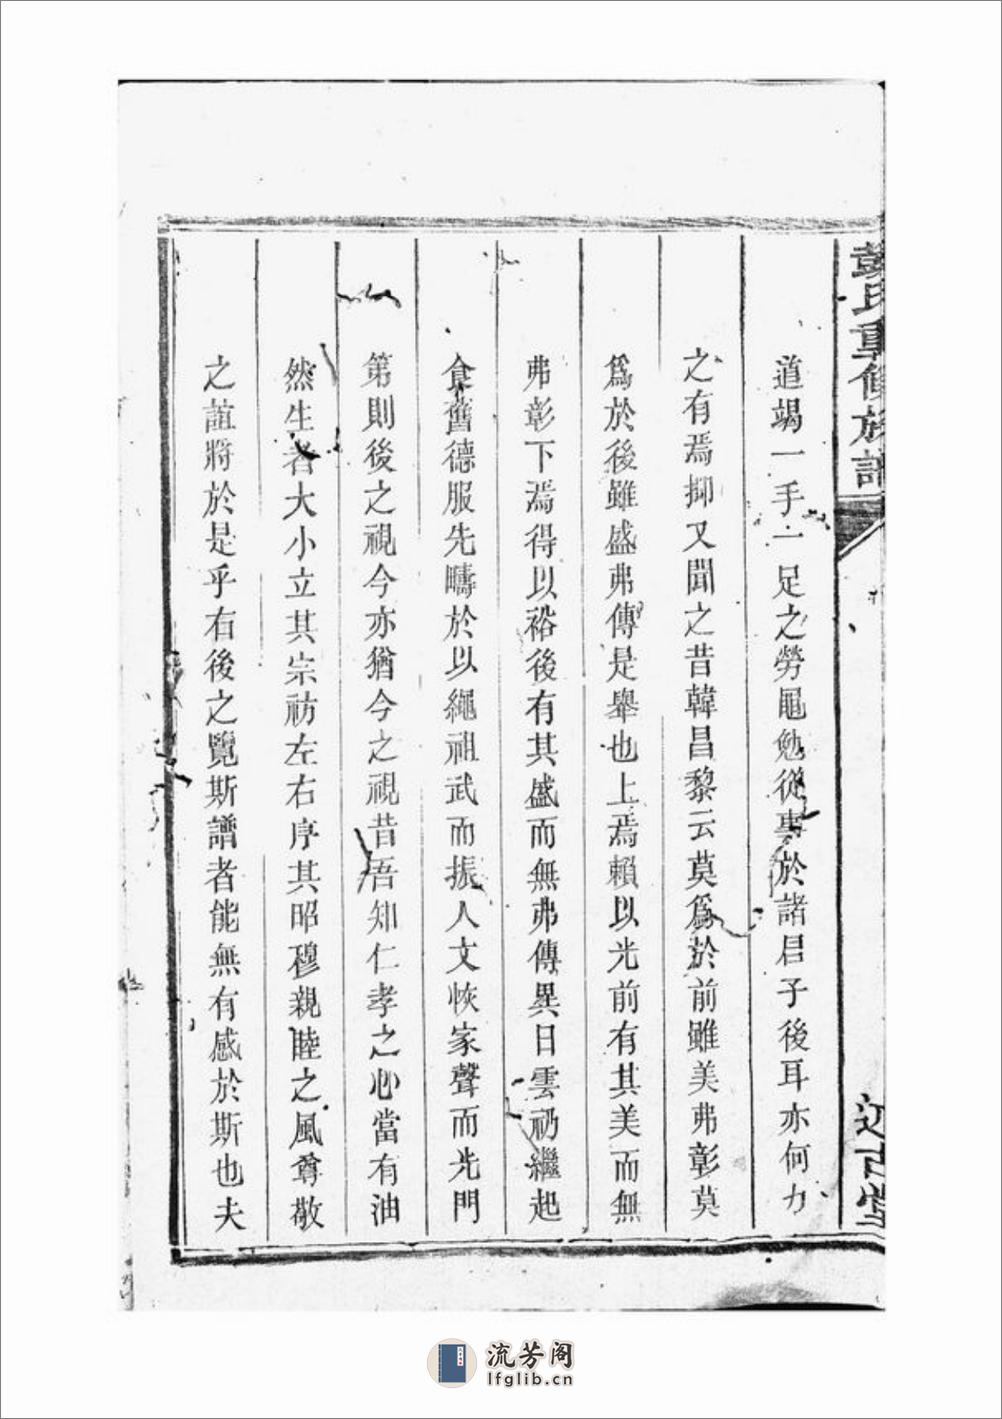 彭氏重修族譜
述古堂
道竭一手一足之勞黽勉從事於諸君子後耳亦何力
之有焉抑又聞之昔韓昌黎云莫爲於前雖美弗彰莫
爲於後雖盛弗傳是舉也上焉賴以光前有其美而無
弗彰下焉得以裕後有其盛而無弗傳異日雲礽繼起
食舊德服先疇於以繩祖武而振人文恢家聲而光門
第則後之視今亦猶今之視昔吾知仁孝之心當有油
然生者大小立其宗祊左右序其昭穆親睦之風尊敬
之誼將於是乎在後之覽斯譜者能無有感於斯也夫
流芳阁
lfglib.cn